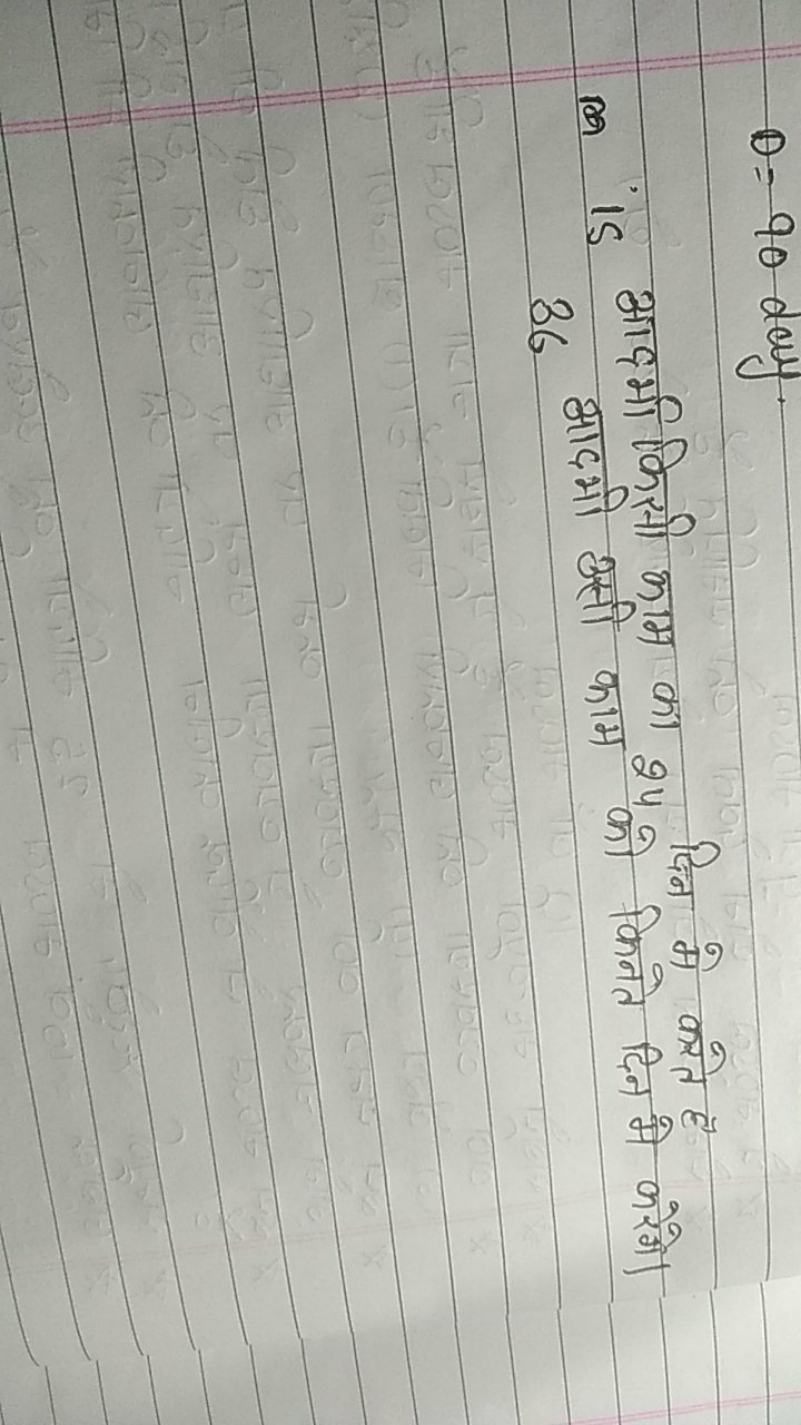 D = 90 day.
15 आदमी किसी काम का 24 दिन मे करते है
36 आदमी उसी काम को कितने दिन मे करेगे।